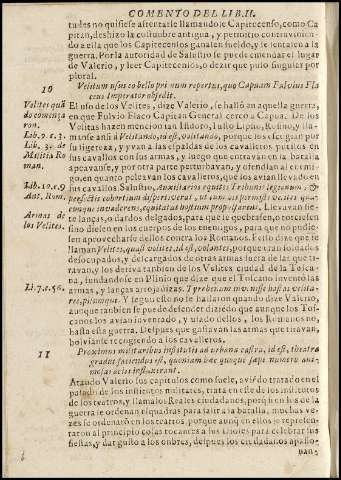 COMENTO DEL LIB. II.
tudes no quisiese afrentarse llamandole Capitecenso, como Ca
pitan, deshizo la costumbre antigua, y permitio
do a ella que los Capitecenios ganasen sueldo, y se sentasen a la
guerra. Por la autoridad de Salustio se puede emendar el lugar
de Valerio, y leer Capitecenios, o dezir que puso singular por
plural.
10
Velitum usus eo bello primum repertus, quo Capuam Fulvius Fla
ccus Imperator obsedit.
Velites quã
do començaron.
Lib. 9. c. 3.
Lib. 3. de
Militia Ro
man.
El uso de los Velites, dize Valerio, se hallò en aquella guerra,
en que Fulvio Flaco Capitan General cerco a Capua. De los
Velites hazen mencion san Isidoro, Iusto Lipsio, Rosino, y llama
ronse assi à Velitando, id est, volitando, porque los escogian por
su ligereza, y yvan a las espaldas de los cavalleros puestos en
sus cavallos con sus armas, y luego que entravan en la batalla
apeavanse, y por otra parte perturbavan, y ofendian al enemi-
go, en quanto peleavan los cavalleros, que los avian llevado en
sus cavallos
Lib. 10. c. 9
Ant. Rom.
Salustio, Auxiliarios equites Tribunis legionum, &
praefectis cohortium dispertiverat, ut cum his permisti velites qua-
cumque invaderent, equitatus hostium propulsarent. Llevavan sie
te lanças, o dardos delgados, para que se quebrasen, o torciesen
Armas de
los Velites.
sino diesen en los cuerpos de los enemigos, para que no pudie-
sen aprovecharse dellos contra los Romanos. Festo dize que se
llaman Velites, quasi volites, id est, volantes, porque yan soldados
desocupados, y descargados de otras armas fuera de las que ti-
ravan, y los deriva tambien de los Velites ciudad de la Tosca-
na,
Li. 7. c. 56.
fundandose en Plinio que dize que el Toscano inventò las
armas, y lanças arrojadizas.
Y segun esto no se hallaron quando dize Valerio,
aunque tambien se puede defender diziendo que aunque los Tos-
canos los avian inventado, y usado dellos, los Romanos no,
hasta esta guerra. Despues que gastavan las armas que tiravan,
bolvianse recogiendo a los cavalleros.
11
Proximus militaribus institutis ad urbana castra, id est, theatra
gradus faciendus est, quoniam haec quoque saepe numero ani-
mosas acies instruxerunt.
Atando Valerio sus capitulos como suele, aviẽdo tratado en el
pasado de los institutos militares, trata en este de los institutos
de los teatros, y llamalos Reales ciudadanos, porq̃ si en los de la
guerra se ordenan esquadras para salir a la batalla, muchas ve-
zes se ordenarõ en los teatros, porque aunq̃ en ellos se represen-
taron al principio cosas tocantes a sus Dioses para celebrar sus
fiestas, y dar gusto a los onbres, despues los ciudadanos apasio-
nan-